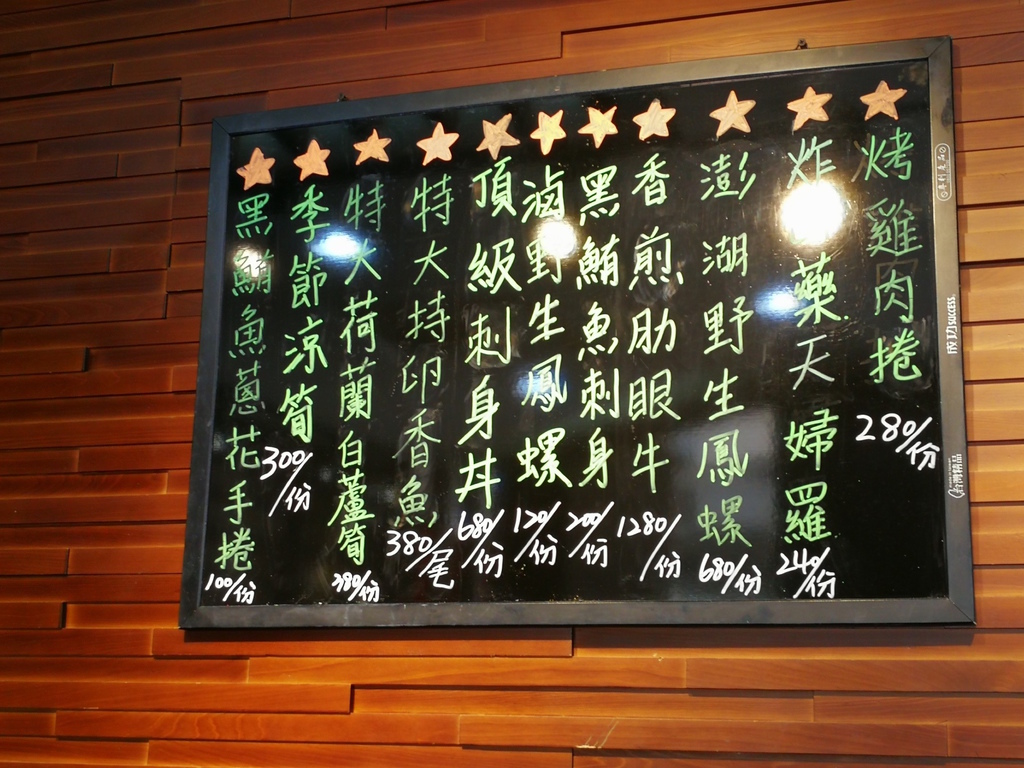 烤雞肉捲 280/份
炸藥天婦羅 240/份
澎湖野生鳳螺 680/份
香煎肋眼牛 1280/份
黑鮪魚刺身 200/份
滷野生鳳螺 120/份
頂級刺身丼 680/份
特大持印香魚 380/尾
特大荷蘭白蘆筍 380/份
季節涼筍 300/份
黑鮪魚蔥花手捲 100/份
專利產品
成功 SUCCESS
台灣精品